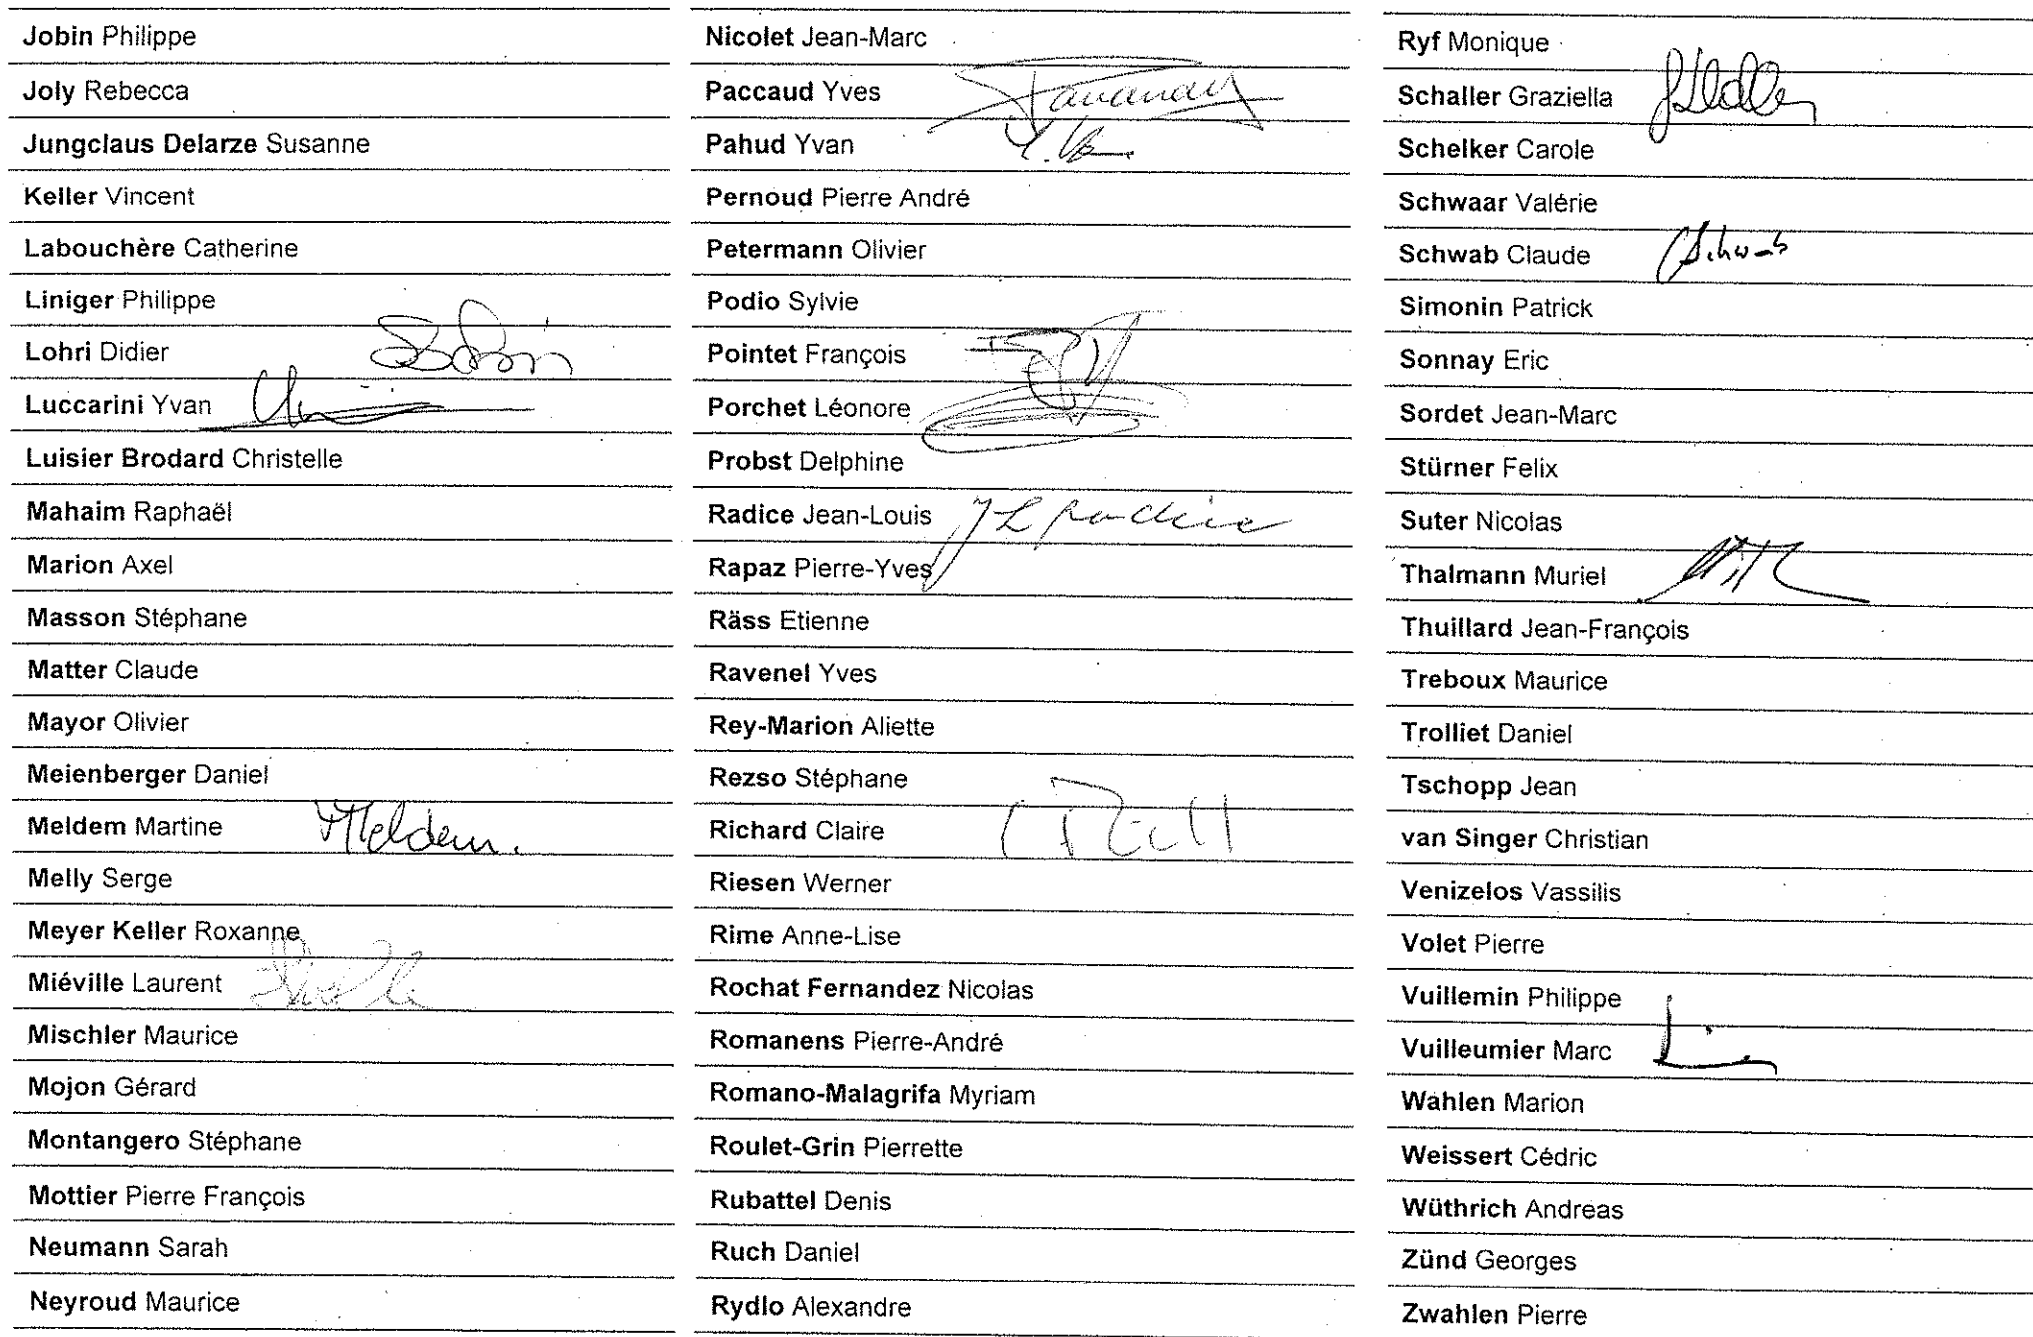 Jobin Philippe
Joly Rebecca
Jungclaus Delarze Susanne
Keller Vincent
Labouchère Catherine
Liniger Philippe
Lohri Didier
Luccarini Yvan
Luisier Brodard Christelle
Mahaim Raphaël
Marion Axel
Masson Stéphane
Matter Claude
Mayor Olivier
Meienberger Daniel
Meldem Martine Meldem.
Melly Serge
Meyer Keller Roxanne
Miéville Laurent
Mischler Maurice
Mojon Gérard
Montangero Stéphane
Mottier Pierre François
Neumann Sarah
Neyroud Maurice
Nicolet Jean-Marc
Paccaud Yves
Pahud Yvan
Pernoud Pierre André
Petermann Olivier
Podio Sylvie
Pointet François
Porchet Léonore
Probst Delphine
Radice Jean-Louis JL Radice
Rapaz Pierre-Yves
Räss Etienne
Ravenel Yves
Rey-Marion Aliette
Rezso Stéphane
Richard Claire
Riesen Werner
Rime Anne-Lise
Rochat Fernandez Nicolas
Romanens Pierre-André
Romano-Malagrifa Myriam
Roulet-Grin Pierrette
Rubattel Denis
Ruch Daniel
Rydlo Alexandre
Ryf Monique
Schaller Graziella
Schelker Carole
Schwaar Valérie
Schwab Claude Schwab
Simonin Patrick
Sonnay Eric
Sordet Jean-Marc
Stürner Felix
Suter Nicolas
Thalmann Muriel
Thuillard Jean-François
Treboux Maurice
Trolliet Daniel
Tschopp Jean
van Singer Christian
Venizelos Vassilis
Volet Pierre
Vuillemin Philippe
Vuilleumier Marc
Wahlen Marion
Weissert Cédric
Wüthrich Andreas
Zünd Georges
Zwahlen Pierre